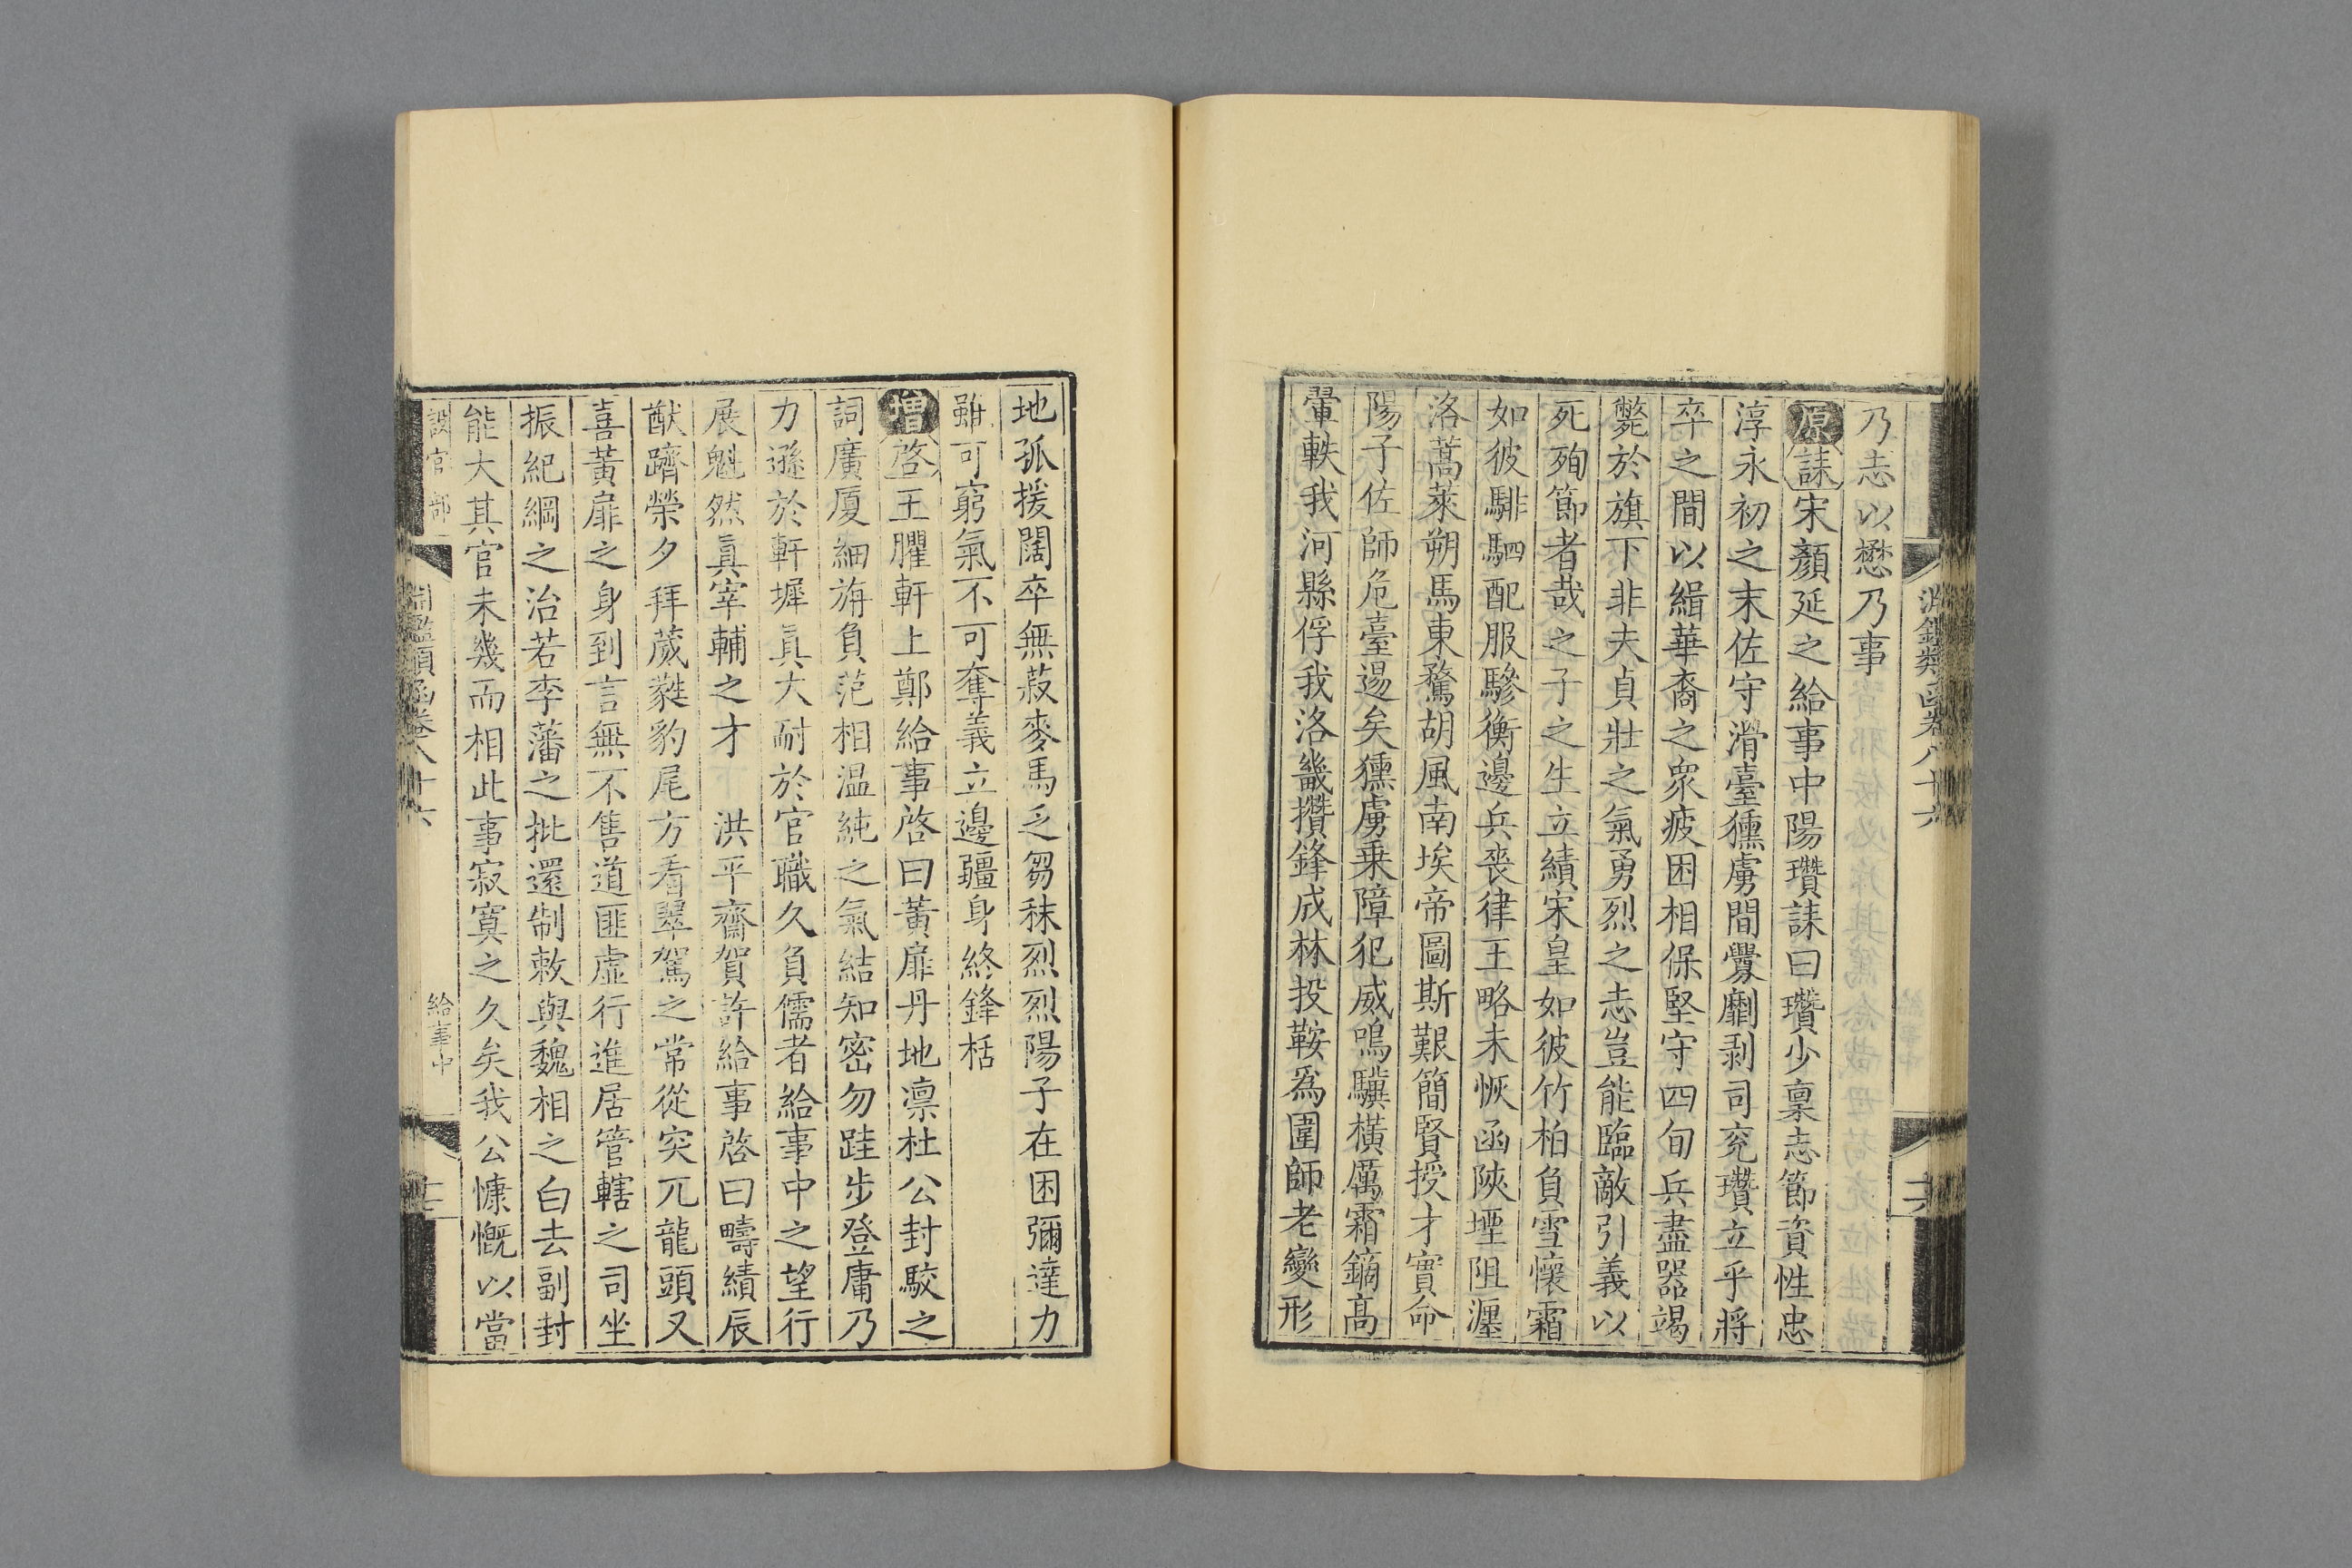 淵鑑類函卷八十六
乃志以懋乃事
原誄宋顏延之給事中陽瓚誄曰瓚少稟志節資性忠
淳永初之末佐守滑臺獯虜間釁劘剥司兖瓚立乎將
卒之間以緝華裔之衆疲困相保堅守四旬兵盡器竭
斃於旗下非夫貞壯之氣勇烈之志豈能臨敵引義以
死殉節者哉之子之生立績宋皇如彼竹柏負雪懷霜
如彼騑駟配服驂衡邊兵喪律王略未恢函陜堙阻瀍
洛蒿萊朔馬東騖胡風南埃帝圖斯艱簡賢授才實命
陽子佐師危臺逷矣獯虜乗障犯威鳴驥橫厲霜鏑高
翬軼我河縣俘我洛畿攢鋒成林投鞍爲圍師老變形
地孤援闊卒無菽麥馬乏芻秣烈烈陽子在困彌達力
雖可窮氣不可奪義立邊疆身終鋒栝
增啓王臞軒上鄭給事啓曰黃扉丹地凛杜公封駮之
詞廣厦細旃負范相温純之氣結知密勿跬步登庸乃
力遜於軒墀眞大耐於官職久負儒者給事中之望行
展魁然眞宰輔之才 洪平齋賀許給事啓曰疇績辰
猷躋榮夕拜葳蕤豹尾方看翠駕之常從突兀龍頭又
喜黃扉之身到言無不售道匪虛行進居管轄之司坐
振紀綱之治若李藩之批還制敕與魏相之白去副封
能大其官未幾而相此事寂寞之久矣我公慷慨以當
設官部 淵鑑類函卷八十六 給事中